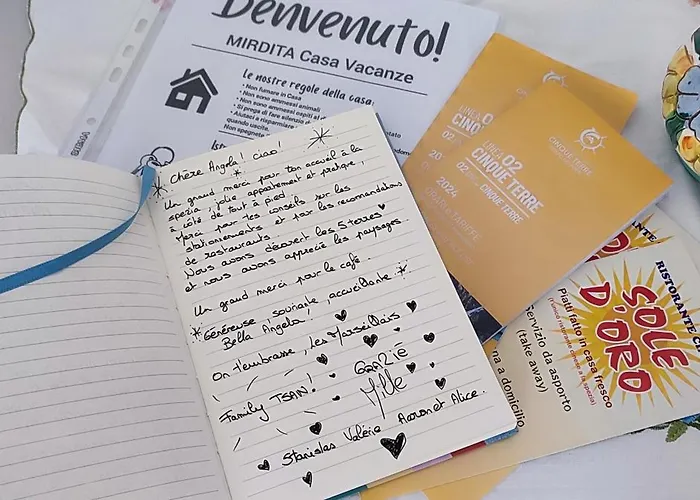 Benvenuto!
MIRDITA Casa Vacanze
Le nostre regole della casa:
• Non fumare in Casa
• Non sono ammessi animali
• Non sono ammessi ospiti al
• Si prega di fare silenzio d
• Aiutaci a risparmiare
quando uscite.
Non spegnete
Chère Angela! Ciao!
Un grand merci pour ton accueil à la
spezia, jolie appartement et pratique,
à côté de tout à pied.
Merci pour tes conseils sur les
stationnements et sur les recommandations
de restaurants.
Nous avons découvert les 5 terres
et nous avons apprécié les paysages.
Un grand merci pour le café.
Généreuse, souriante, accueillante.
Bella Angela!
On t'embrasse, Les Marseillais
GRAZIE
Mille
Family TSAN!
Stanislas Valérie Aaron et Alice.
LINEA 0
CINQ
02
20
LINEA 02
CINQUE TERRE
02. CINQUE TERRE
2024
ORARI e TARIFFE
CINQUE TERRE
RISTORANTE
SOLE
D'ORO
Piatti fatto in casa fresco
Servizio da asporto
(take away)
a domicilio